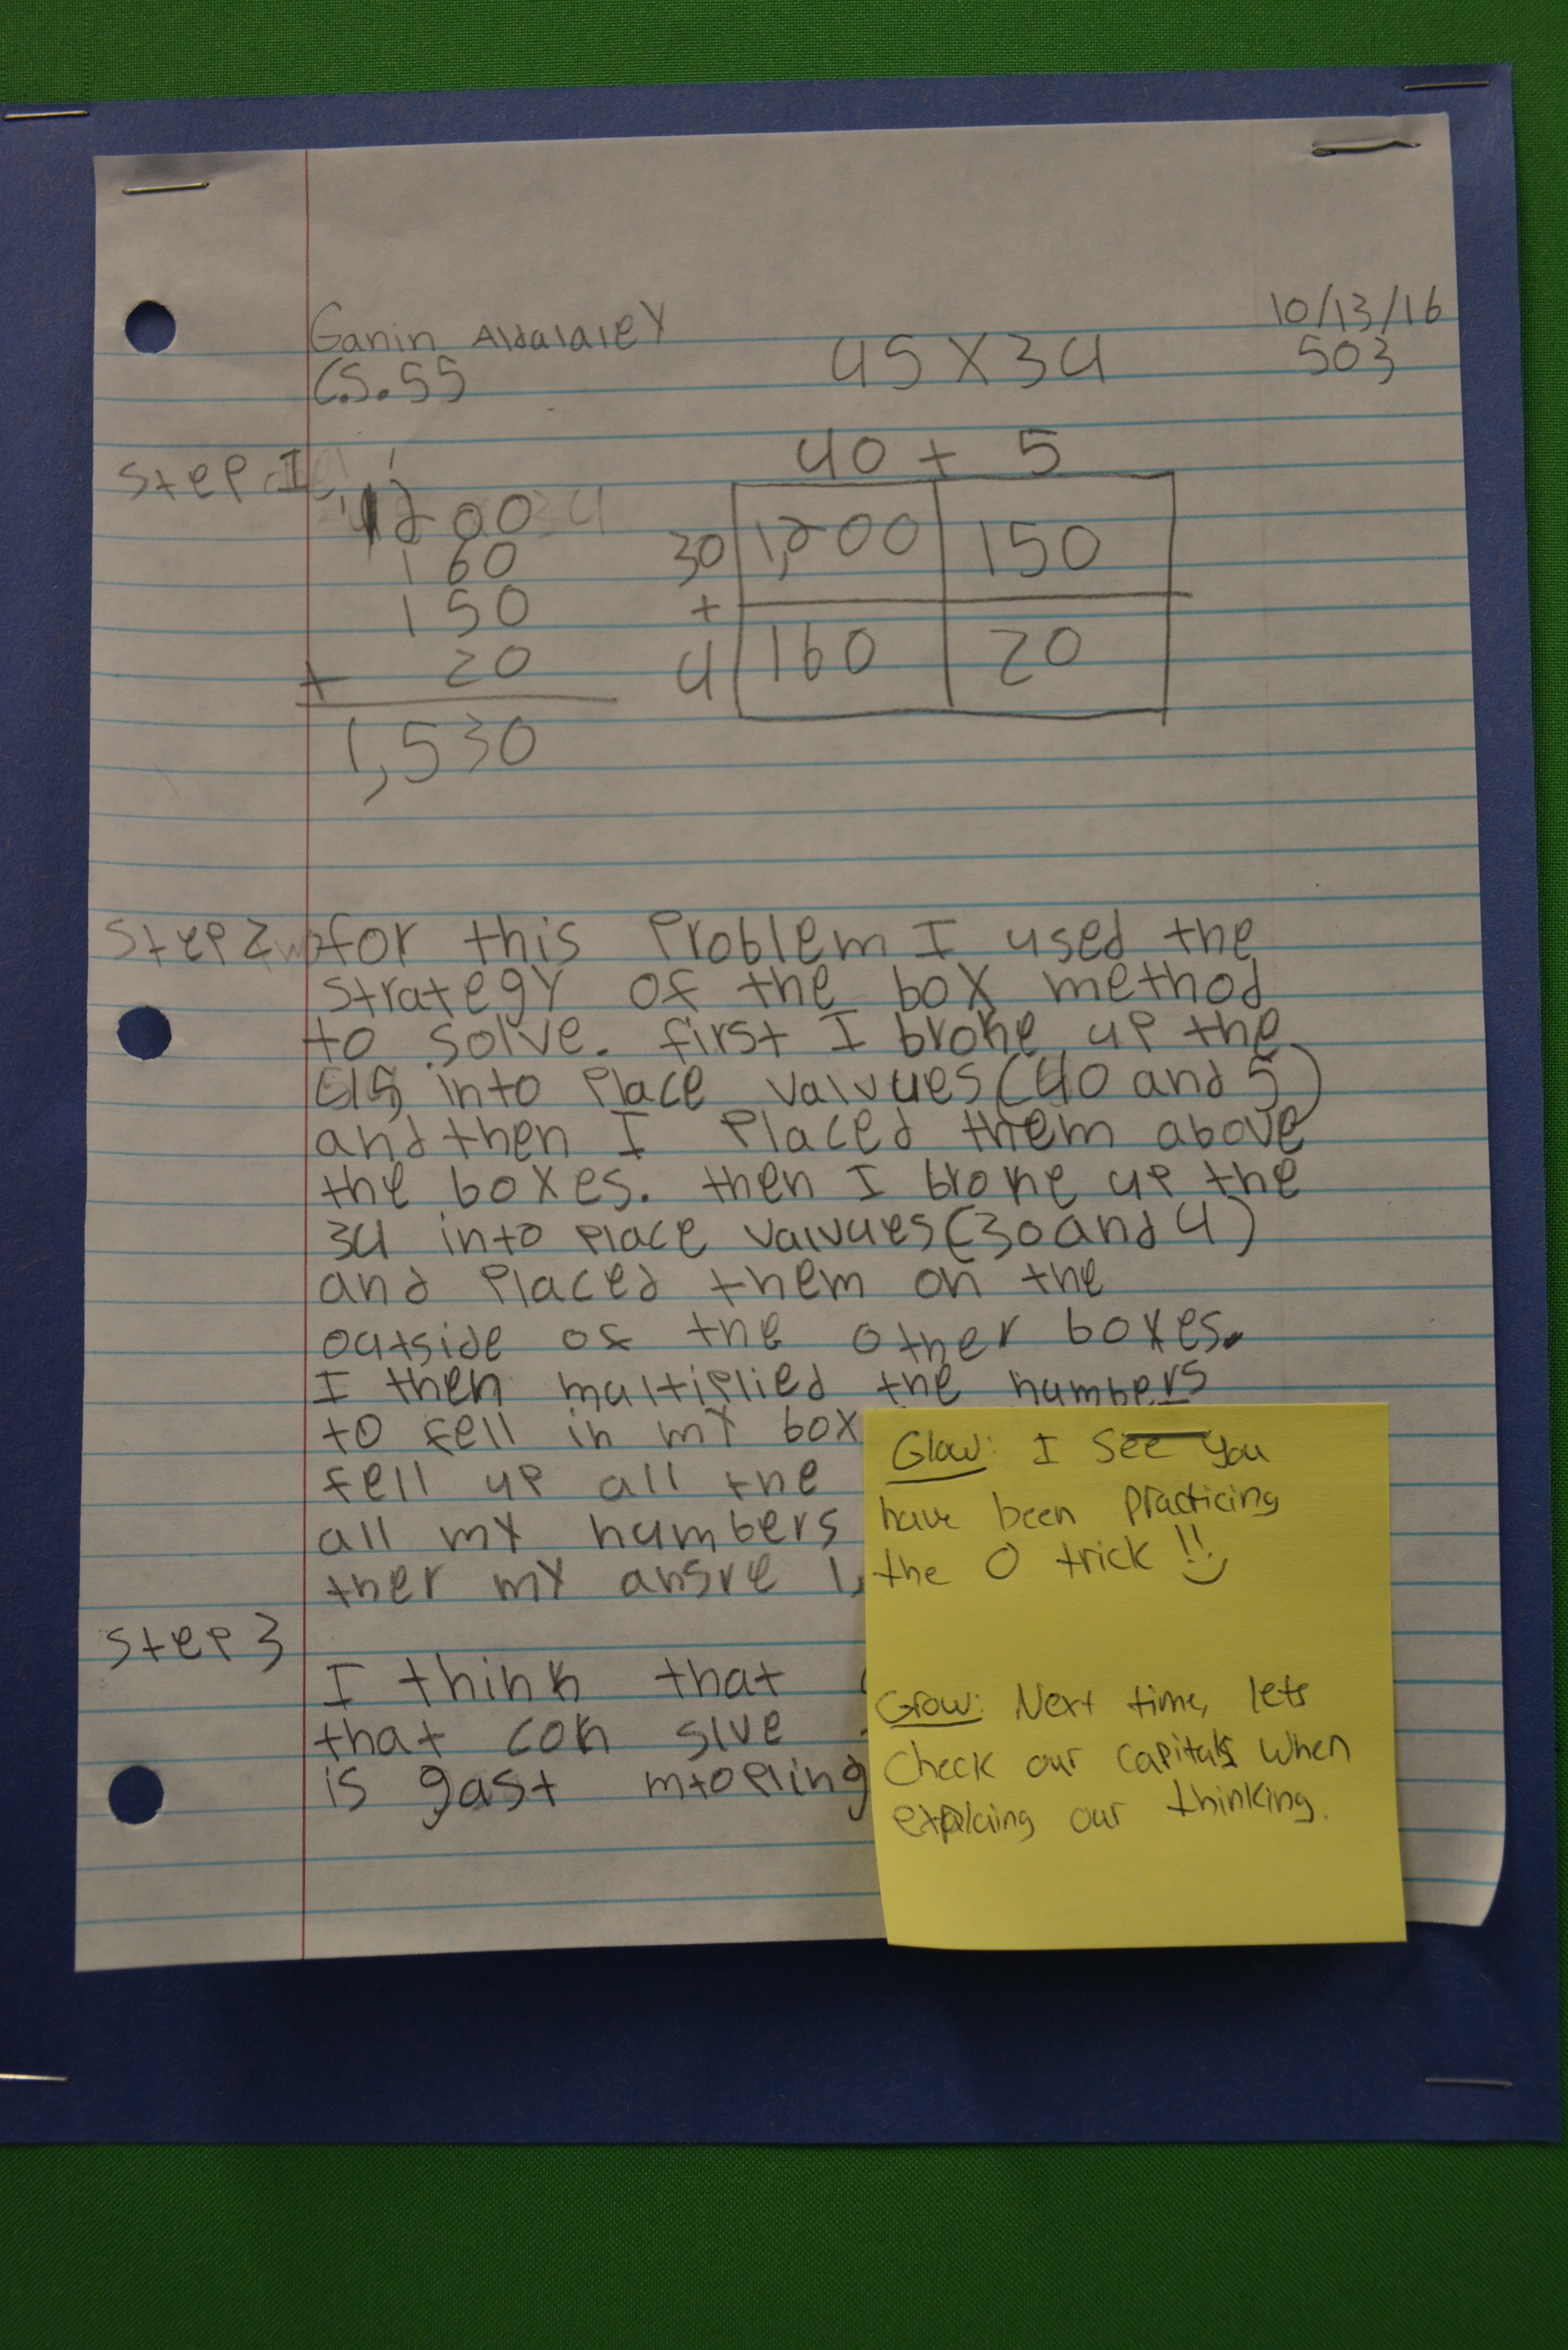 Ganin Aldalaley
10/13/16
C.S.55
45 X 34
503
Step 1
40 + 5
1200
30 1,200 150
160
+
150
4 160 20
+ 20
1,530
Step 2 for this Problem I used the
strategy of the box method
to solve. first I broke up the
45 into Place valvues (40 and 5)
and then I Placed them above
the boxes. then I broke up the
34 into Place valvues (30 and 4)
and Placed them on the
outside of the other boxes.
I then multiplied the numbers
to fell in my box
fell up all the
all my numbers
ther my ansre 1,
Step 3
I think that
that con slve
is gast mtopling
Glow: I see you
have been practicing
the 0 trick !!
Grow: Next time, lets
check our capitals when
explaing our thinking.